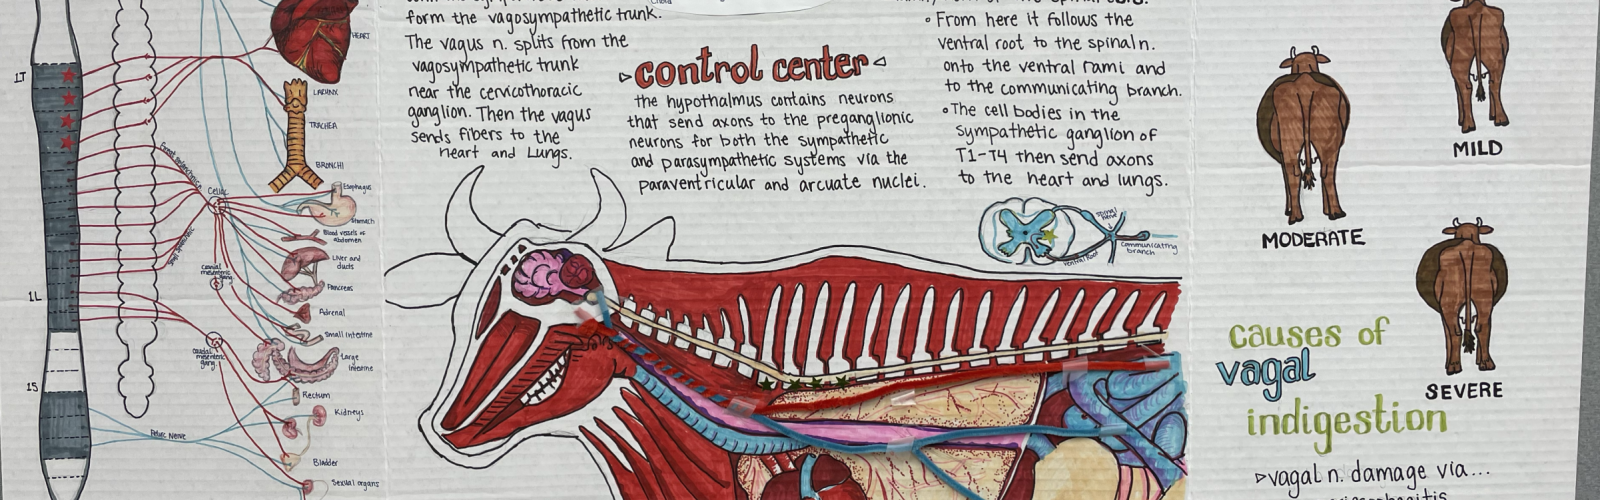 form the vagosympathetic trunk.
The vagus n. splits from the
vagosympathetic trunk
near the cervicothoracic
ganglion. Then the vagus
sends fibers to the
heart and Lungs.
control center
the hypothalmus contains neurons
that send axons to the preganglionic
neurons for both the sympathetic
and parasympathetic systems via the
paraventricular and arcuate nuclei.
From here it follows the
ventral root to the spinal n.
onto the ventral rami and
to the communicating branch.
The cell bodies in the
sympathetic ganglion of
T1-T4 then send axons
to the heart and lungs.
spinal nerve
communicating
branch
ventral root
1T
1L
1S
HEART
LARYNX
TRACHEA
BRONCHI
Esophagus
Stomach
Blood vessels of
abdomen
Liver and
ducts
Pancreas
Adrenal
Small intestine
Large
intestine
Rectum
Kidneys
Bladder
Sexual organs
Celiac
Cranial
mesenteric
gang.
Caudal
mesenteric
gang.
Pelvic Nerve
MILD
MODERATE
SEVERE
causes of
vagal
indigestion
vagal n. damage via...